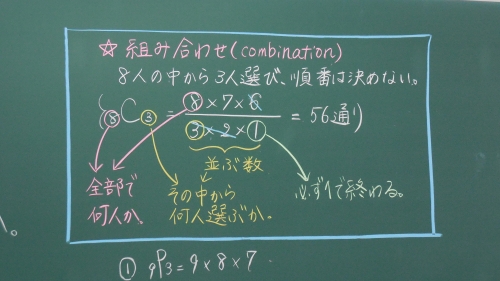 ☆組み合わせ(combination)
8人の中から3人選び、順番は決めない。
8C3 = 8×7×6 / 3×2×1 = 56通り
並ぶ数
全部で
何人か。
その中から
何人選ぶか。
必ず1で終わる。
① 9P3=9×8×7